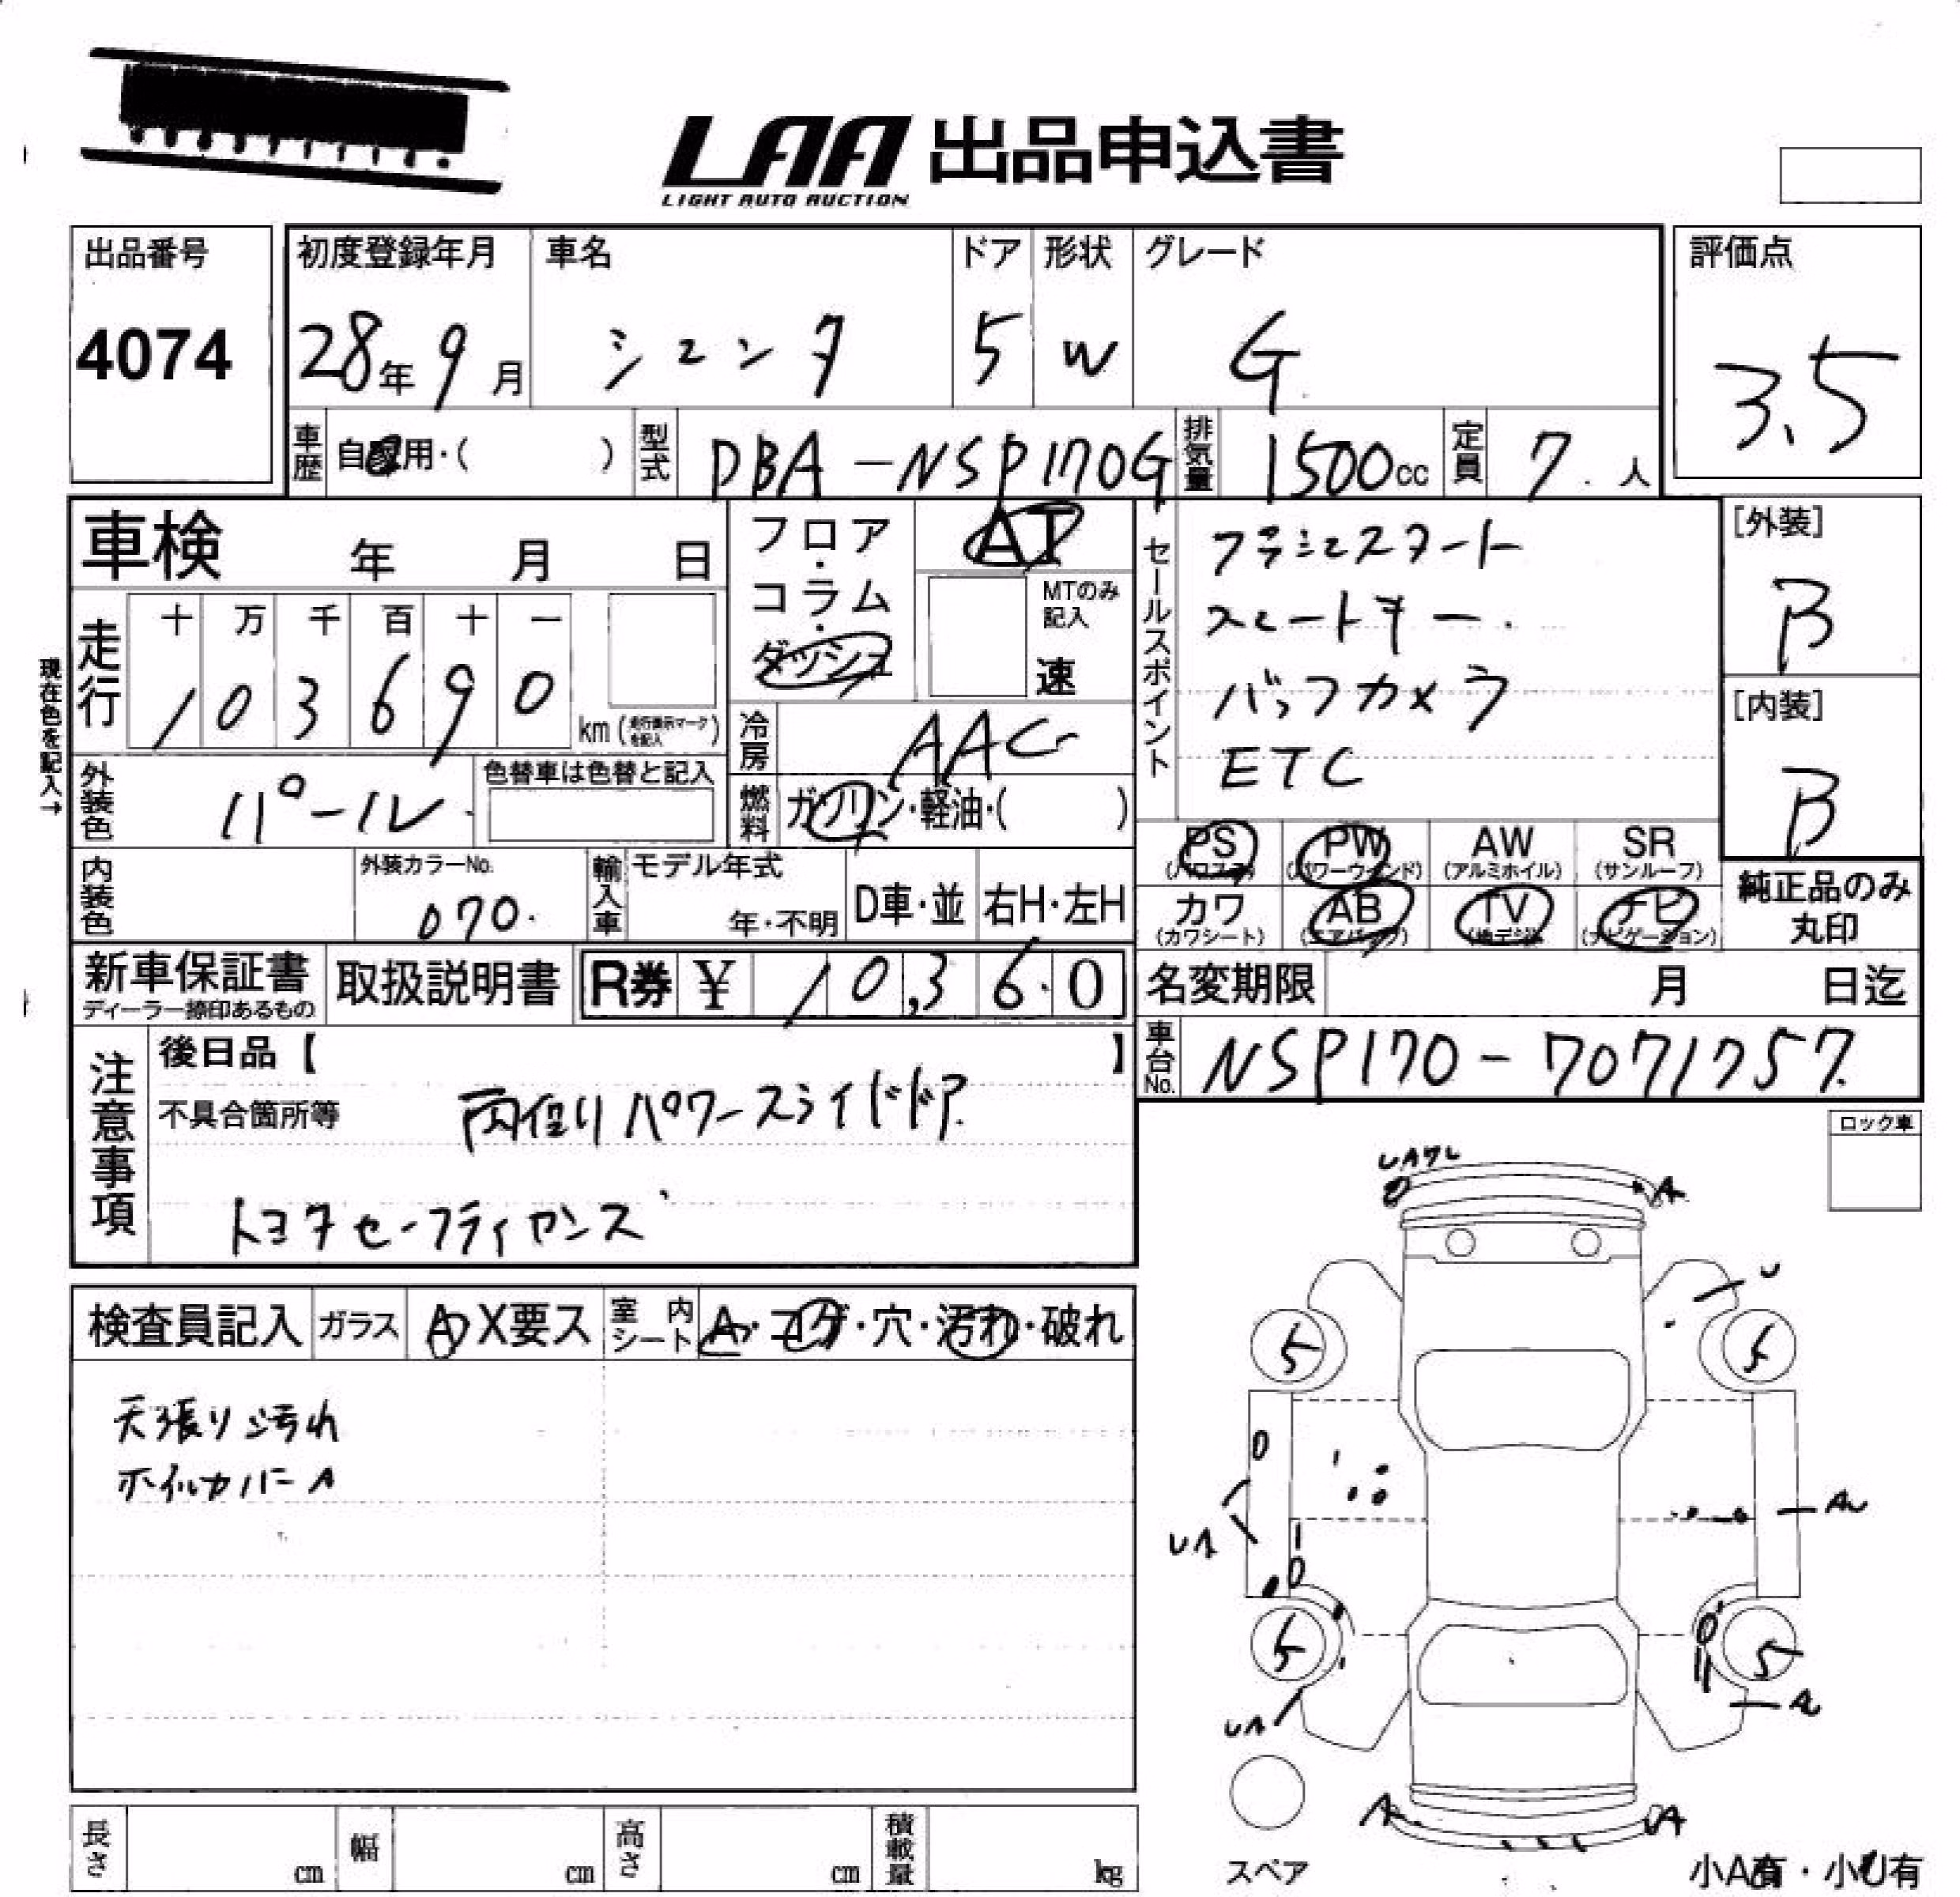 LAA 出品申込書
LIGHT AUTO AUCTION
出品番号
4074
初度登録年月
28年 9月
車名
シエンタ
ドア
5
形状
W
グレード
G
評価点
3.5
車歴
自家用・( )
型式
DBA-NSP170G
排気量
1500cc
定員
7人
車検 年 月 日
走行
十 万 千 百 十 一
1 0 3 6 9 0
km (走行表示マークを記入)
現在色を記入→
外装色
パール
色替車は色替と記入
内装色
外装カラーNo.
070.
輸入車
モデル年式
年・不明
D車・並
右H・左H
フロア・
コラム・
ダッシュ
AT
MTのみ記入
速
冷房
AAC
燃料
ガソリン・軽油・( )
セールスポイント
プッシュスタート
スマートキー.
バックカメラ
ETC
[外装]
B
[内装]
B
PS PW AW SR
(パワーウィンド) (アルミホイル) (サンルーフ)
カワ AB TV ナビ
(カワシート) (エアバッグ) (地デジ) (ナビゲーション)
純正品のみ
丸印
新車保証書
ディーラー捺印あるもの
取扱説明書
R券 ¥ 10,360
名変期限 月 日迄
車台No.
NSP170-7071757
注意事項
後日品【 】
不具合箇所等
両側パワースライドドア
トヨタセーフティセンス
ロック車
検査員記入
ガラス
A X要ス
室内シート
A・コゲ・穴・汚れ・破れ
天張り汚れ
ホイルカバーA
UAワレ
A
U
5
5
UA
AU
5
5
UA
A
UA
スペア
小A有・小U有
長さ cm
幅 cm
高さ cm
積載量 kg